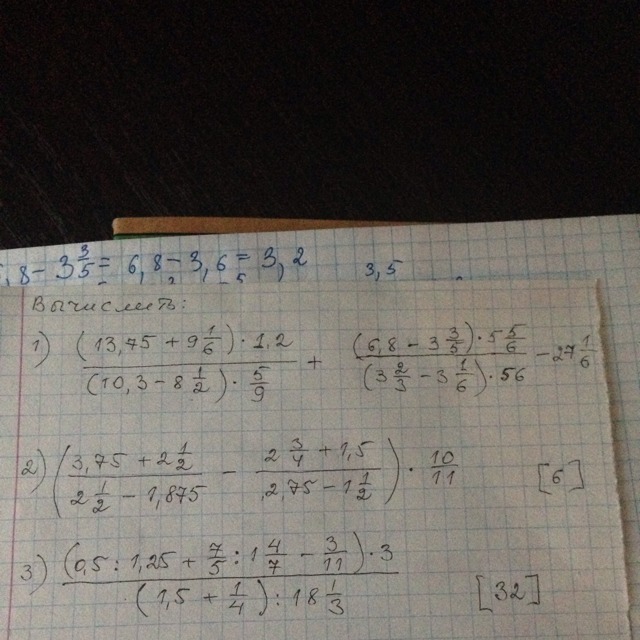 ,8 - 3 3/5 = 6,8 - 3,6 = 3,2 3,5
Вычислить:
1) ((13,75 + 9 1/6) · 1,2)/((10,3 - 8 1/2) · 5/9) + ((6,8 - 3 3/5) · 5 5/6)/((3 2/3 - 3 1/6) · 56) - 27 1/6
2) ((3,75 + 2 1/2)/(2 1/2 - 1,875) - (2 3/4 + 1,5)/(2,75 - 1 1/2)) · 10/11 [6]
3) ((0,5 : 1,25 + 7/5 : 1 4/7 - 3/11) · 3)/((1,5 + 1/4) : 18 1/3) [32]